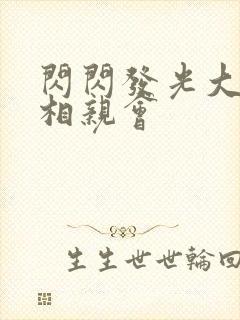 閃閃發光大
相親會
生生世世輪回